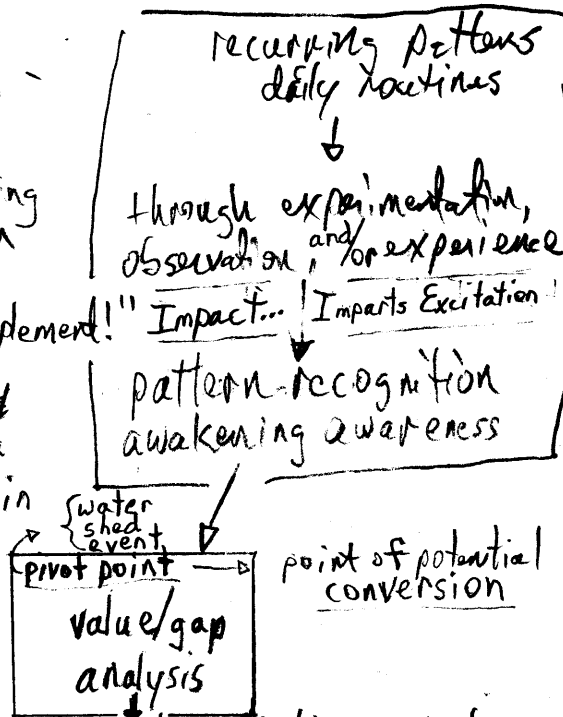 recurring patterns
daily routines
ng
through experimentation,
observation, and/or experience
plement!" Impact... Imparts Excitation
pattern-recognition
awakening awareness
in
{water
shed
event,
pivot point
point of potential
conversion
value/gap
analysis